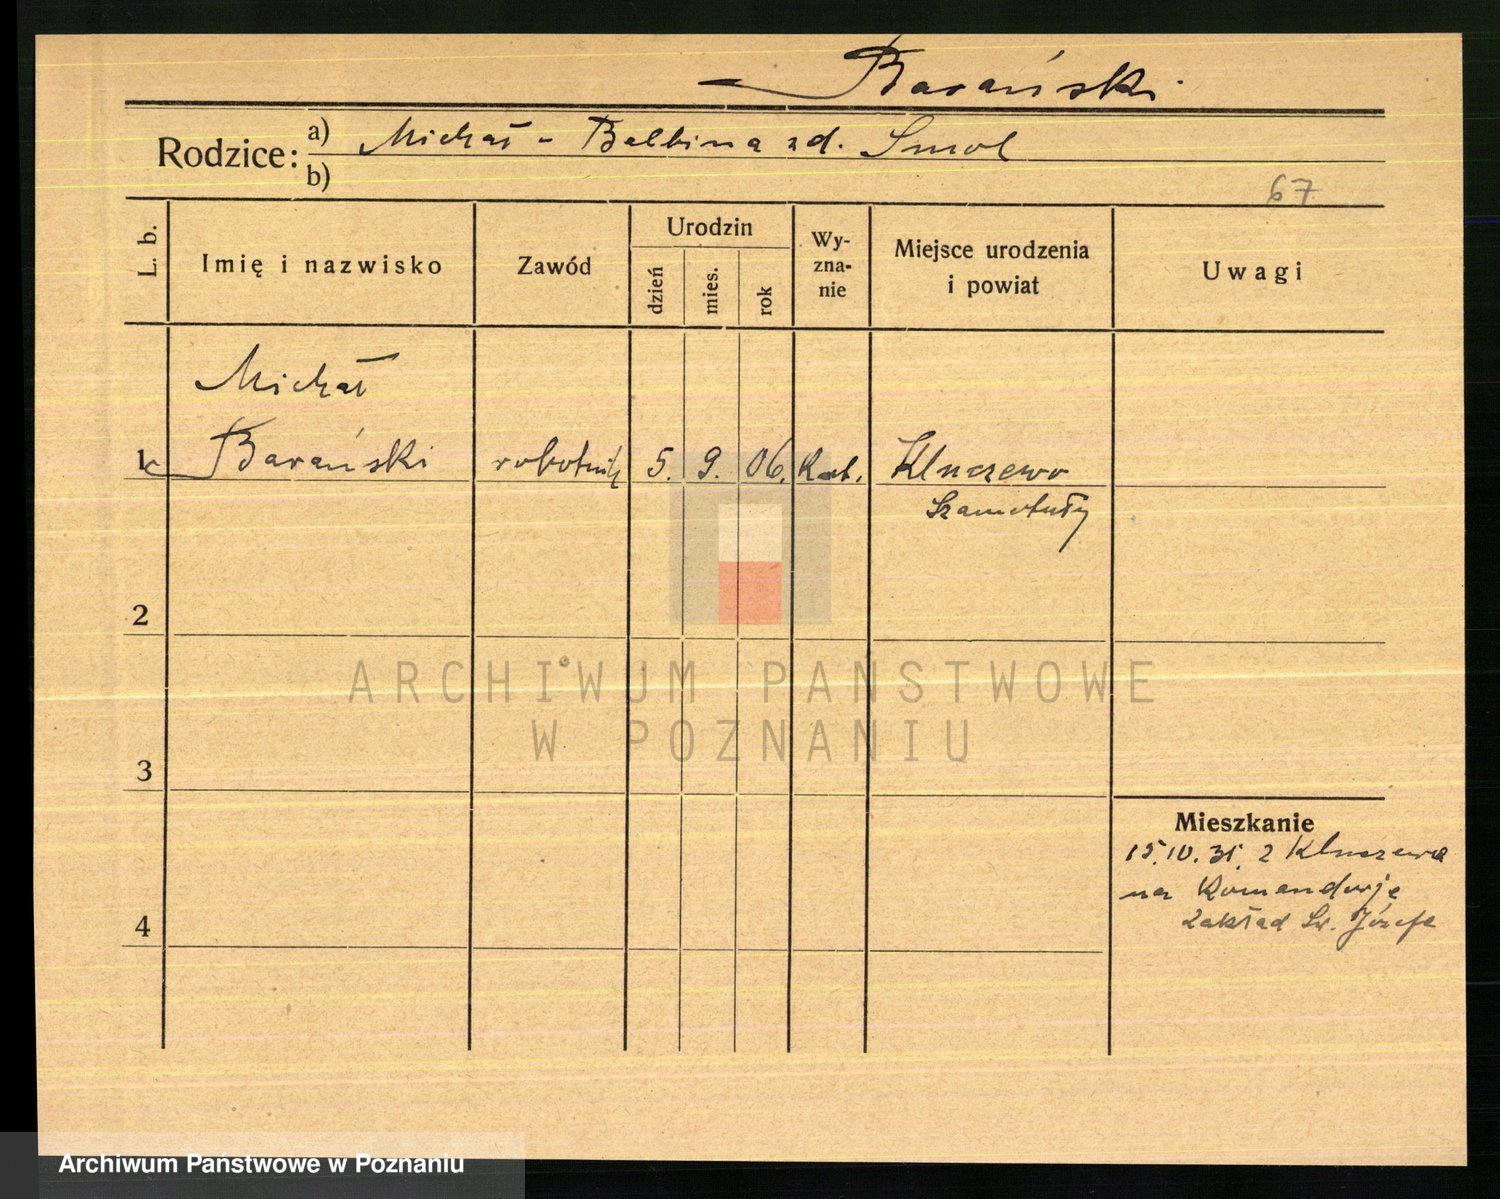 Barański
Rodzice: a) Michał - Balbina zd. Smol
b)
67
L. b.
Imię i nazwisko
Zawód
Urodzin
dzień
mies.
rok
Wy-
zna-
nie
Miejsce urodzenia
i powiat
Uwagi
Michał
1 Barański robotnik 5. 9. 06. Kat. Kluczewo
Szamotuły
2
ARCHIWUM PAŃSTWOWE
W POZNANIU
3
Mieszkanie
15.10.31. z Kluczewa
na Komandorję
4
Zakład Św. Józefa
Archiwum Państwowe w Poznaniu